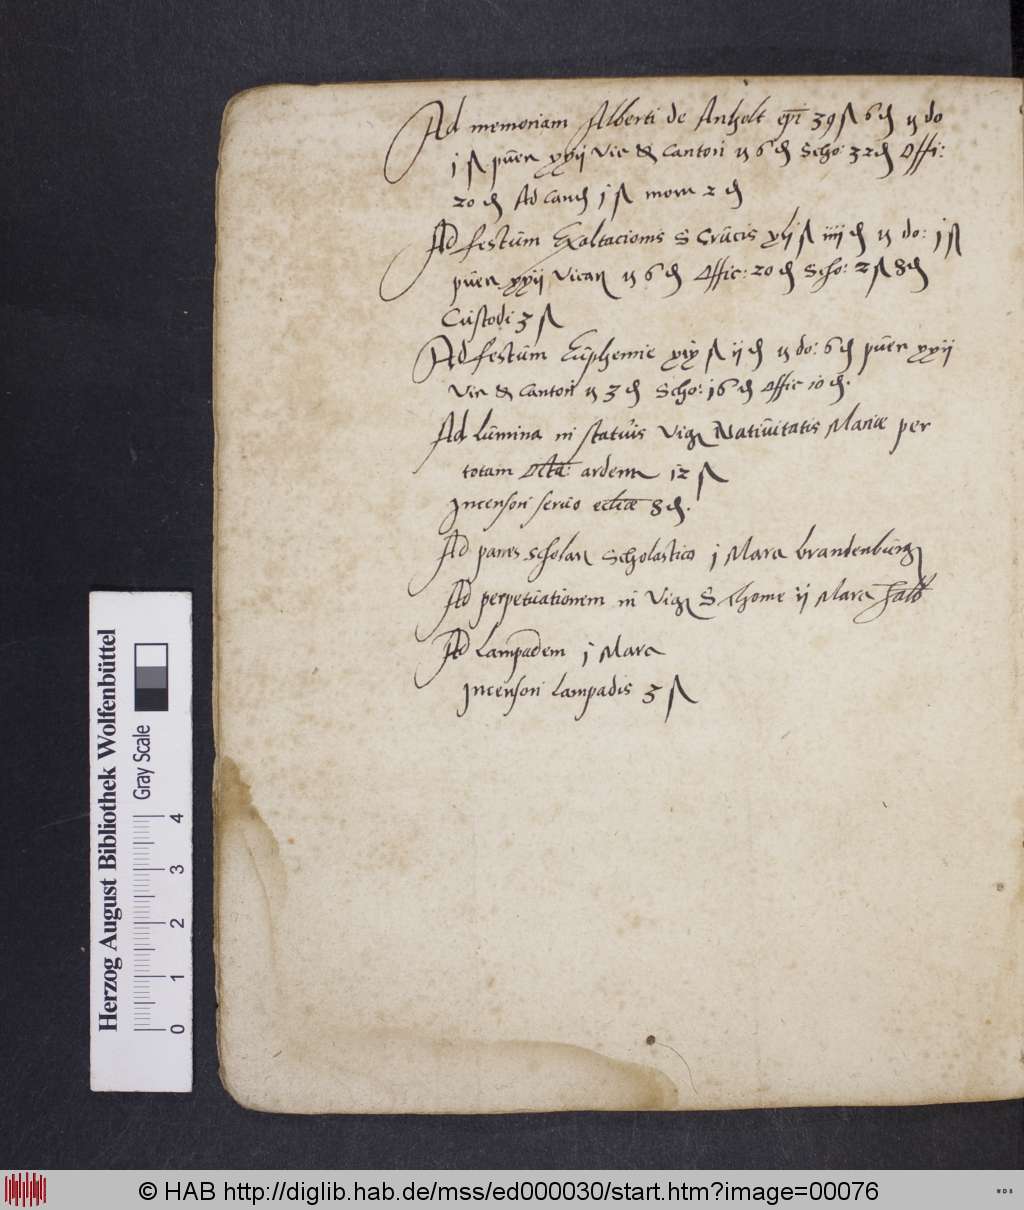 Ad memoriam Alberti de Anholt epi 39 ß 6 d y do
j ß puer xxij Vic & Cantori y 6 d Scho: 32 d Offi:
20 d Ad cand j ß mora 2 d
Ad festum Exaltacionis S Crucis xlj ß iiij d y do: j ß
puer xxij Vicar y 6 d Offic: 20 d Scho: 2 ß 8 d
Custodi 3 ß
Ad festum Euphemie xix ß ij d y do: 6 d puer xxij
Vic & Cantori y 3 d Scho: 16 d Offic 10 d.
Ad Lumina in statuis Vig Nativitatis Mariae per
totam Octa: arden 12 ß
Incensori servo ecliae 8 d.
Ad panes scholar Scholastico j Marc brandenburg
Ad perpetuationem in Vig S Thome ij Marc halb
Ad Lampadem j Marc
Incensori lampadis 3 ß
Herzog August Bibliothek Wolfenbüttel
Gray Scale
0 1 2 3 4
© HAB http://diglib.hab.de/mss/ed000030/start.htm?image=00076